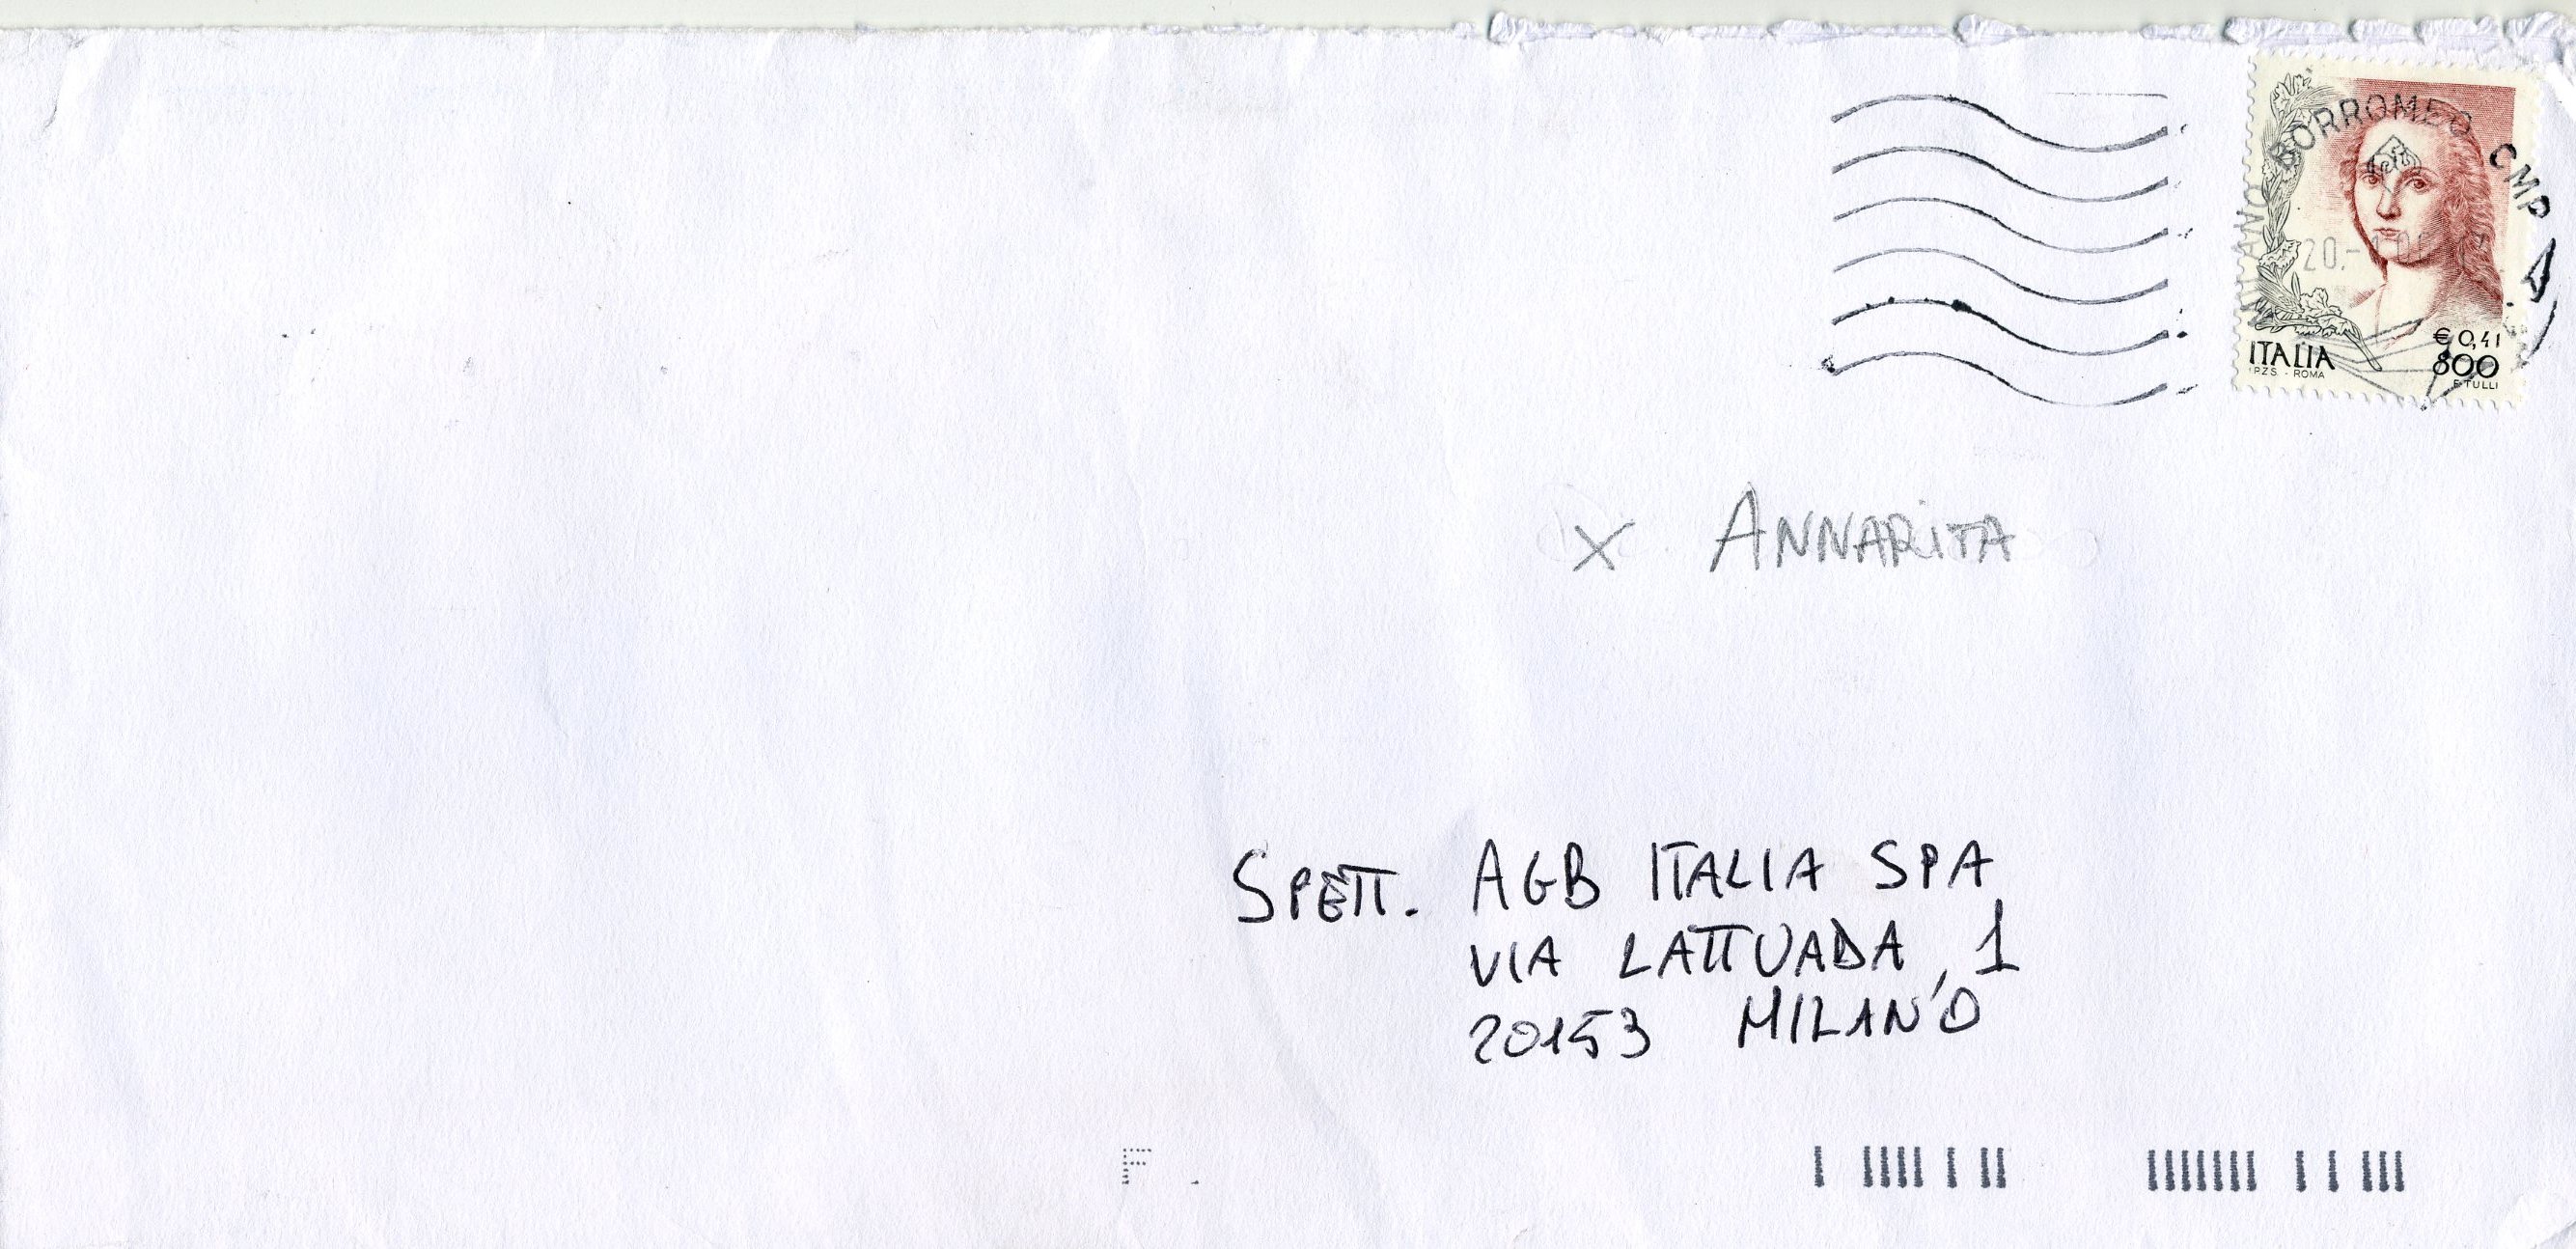 MILANO BORROMEO CMP A
€ 0,41
800
ITALIA
I.P.Z.S. - ROMA
F. TULLI
X ANNARITA
SPETT. AGB ITALIA SPA
VIA LATTUADA, 1
20153 MILANO
F